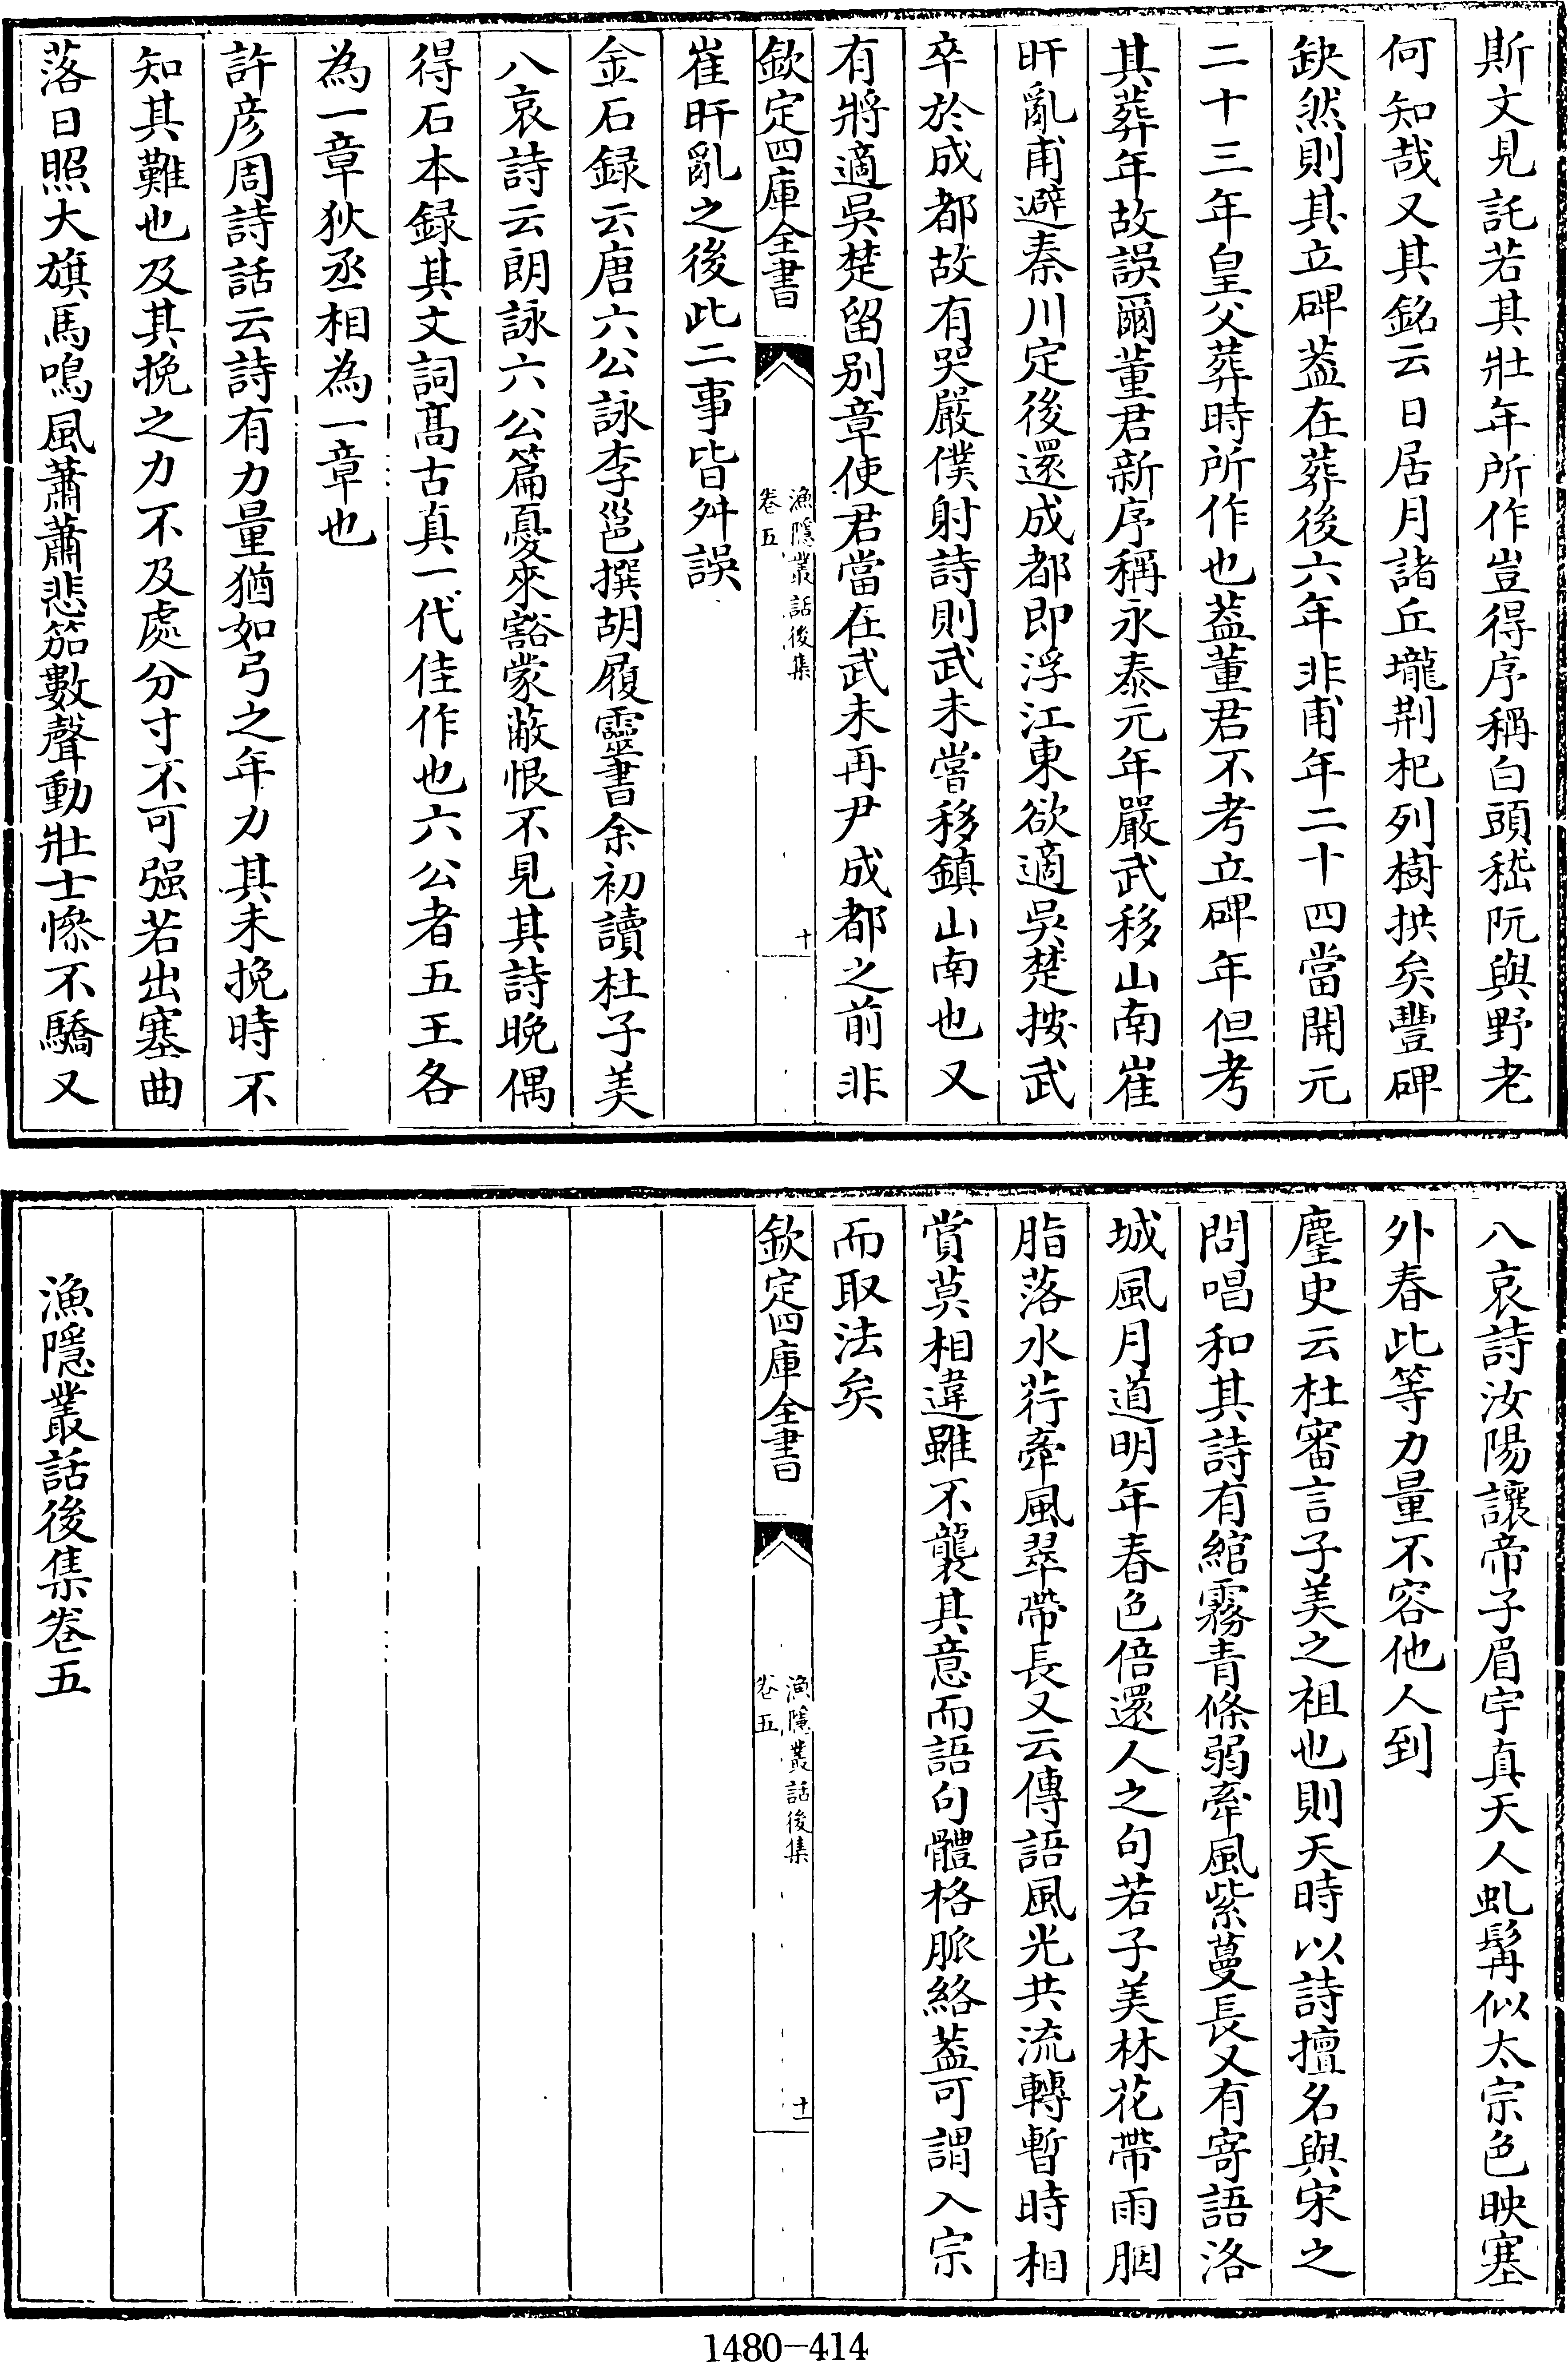 斯文見託若其壯年所作豈得序稱白頭嵇阮與野老
何知哉又其銘云日居月諸丘壠荆杞列樹拱矣豐碑
缺然則其立碑葢在葬後六年非甫年二十四當開元
二十三年皇父葬時所作也葢董君不考立碑年但考
其葬年故誤爾董君新序稱永泰元年嚴武移山南崔
旰亂甫避秦川定後還成都即浮江東欲適吳楚按武
卒於成都故有哭嚴僕射詩則武未嘗移鎮山南也又
有將適吳楚留别章使君當在武未再尹成都之前非
欽定四庫全書
漁隱叢話後集
卷五
十
崔旰亂之後此二事皆舛誤
金石録云唐六公詠李邕撰胡履靈書余初讀杜子美
八哀詩云朗詠六公篇憂來豁蒙蔽恨不見其詩晚偶
得石本録其文詞髙古真一代佳作也六公者五王各
為一章狄丞相為一章也
許彦周詩話云詩有力量猶如弓之年力其未挽時不
知其難也及其挽之力不及處分寸不可强若出塞曲
落日照大旗馬鳴風蕭蕭悲笳數聲動壯士慘不驕又
八哀詩汝陽讓帝子眉宇真天人虬髯似太宗色映塞
外春此等力量不容他人到
麈史云杜審言子美之祖也則天時以詩擅名與宋之
問唱和其詩有綰霧青條弱牽風紫蔓長又有寄語洛
城風月道明年春色倍還人之句若子美林花帶雨胭
脂落水荇牽風翠帶長又云傳語風光共流轉暫時相
賞莫相違雖不襲其意而語句體格脈絡葢可謂入宗
而取法矣
欽定四庫全書
漁隱叢話後集
卷五
十一
漁隱叢話後集卷五
1480-414